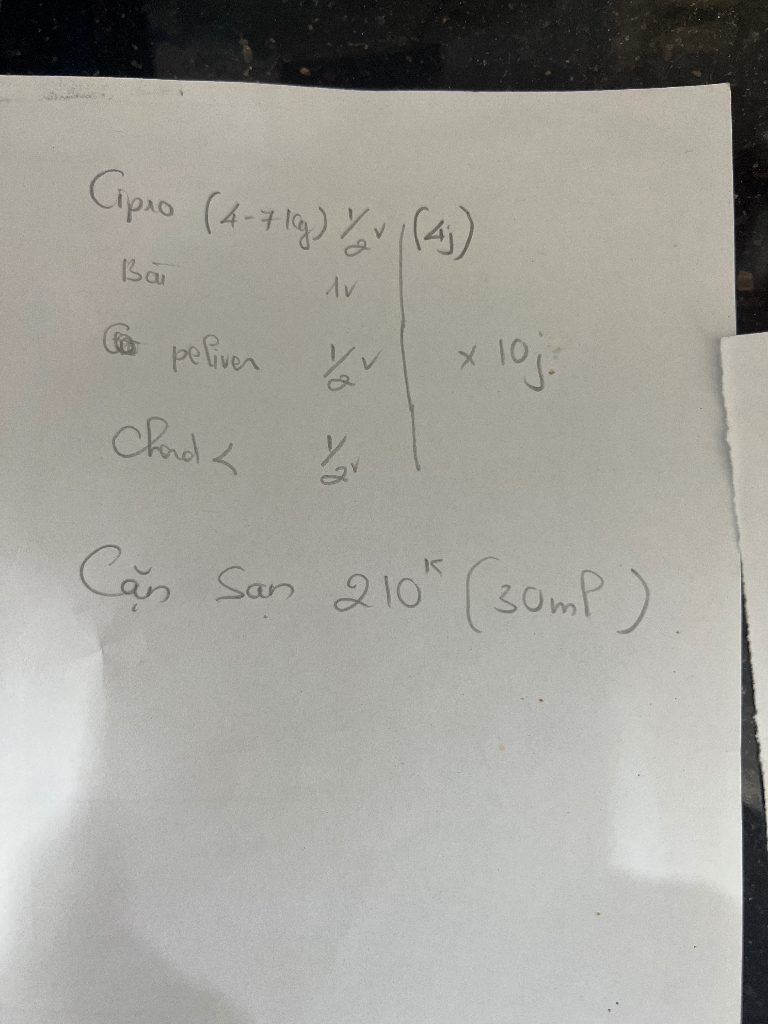 Cipro (4-7kg) 1/2v (4j)
Bài 1v
peliver 1/2v x 10j
Chol < 1/2v
Cặn sạn 210K (30ml)